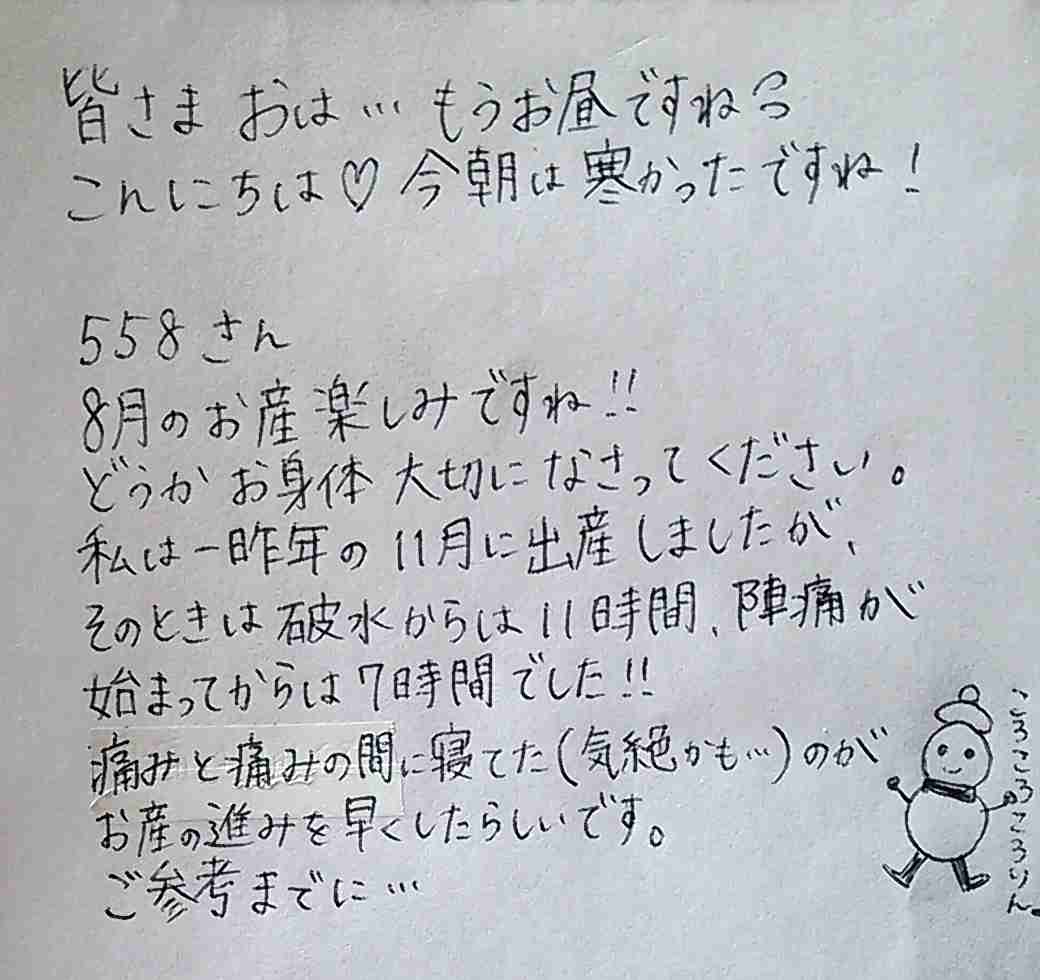 皆さま おは… もうお昼ですね
こんにちは♡ 今朝は寒かったですね！
558さん
8月のお産楽しみですね!!
どうかお身体大切になさってください。
私は一昨年の11月に出産しましたが、
そのときは破水からは11時間、陣痛が
始まってからは7時間でした!!
痛みと痛みの間に寝てた(気絶かも…)のが
お産の進みを早くしたらしいです。
ご参考までに…
ころころころりん。